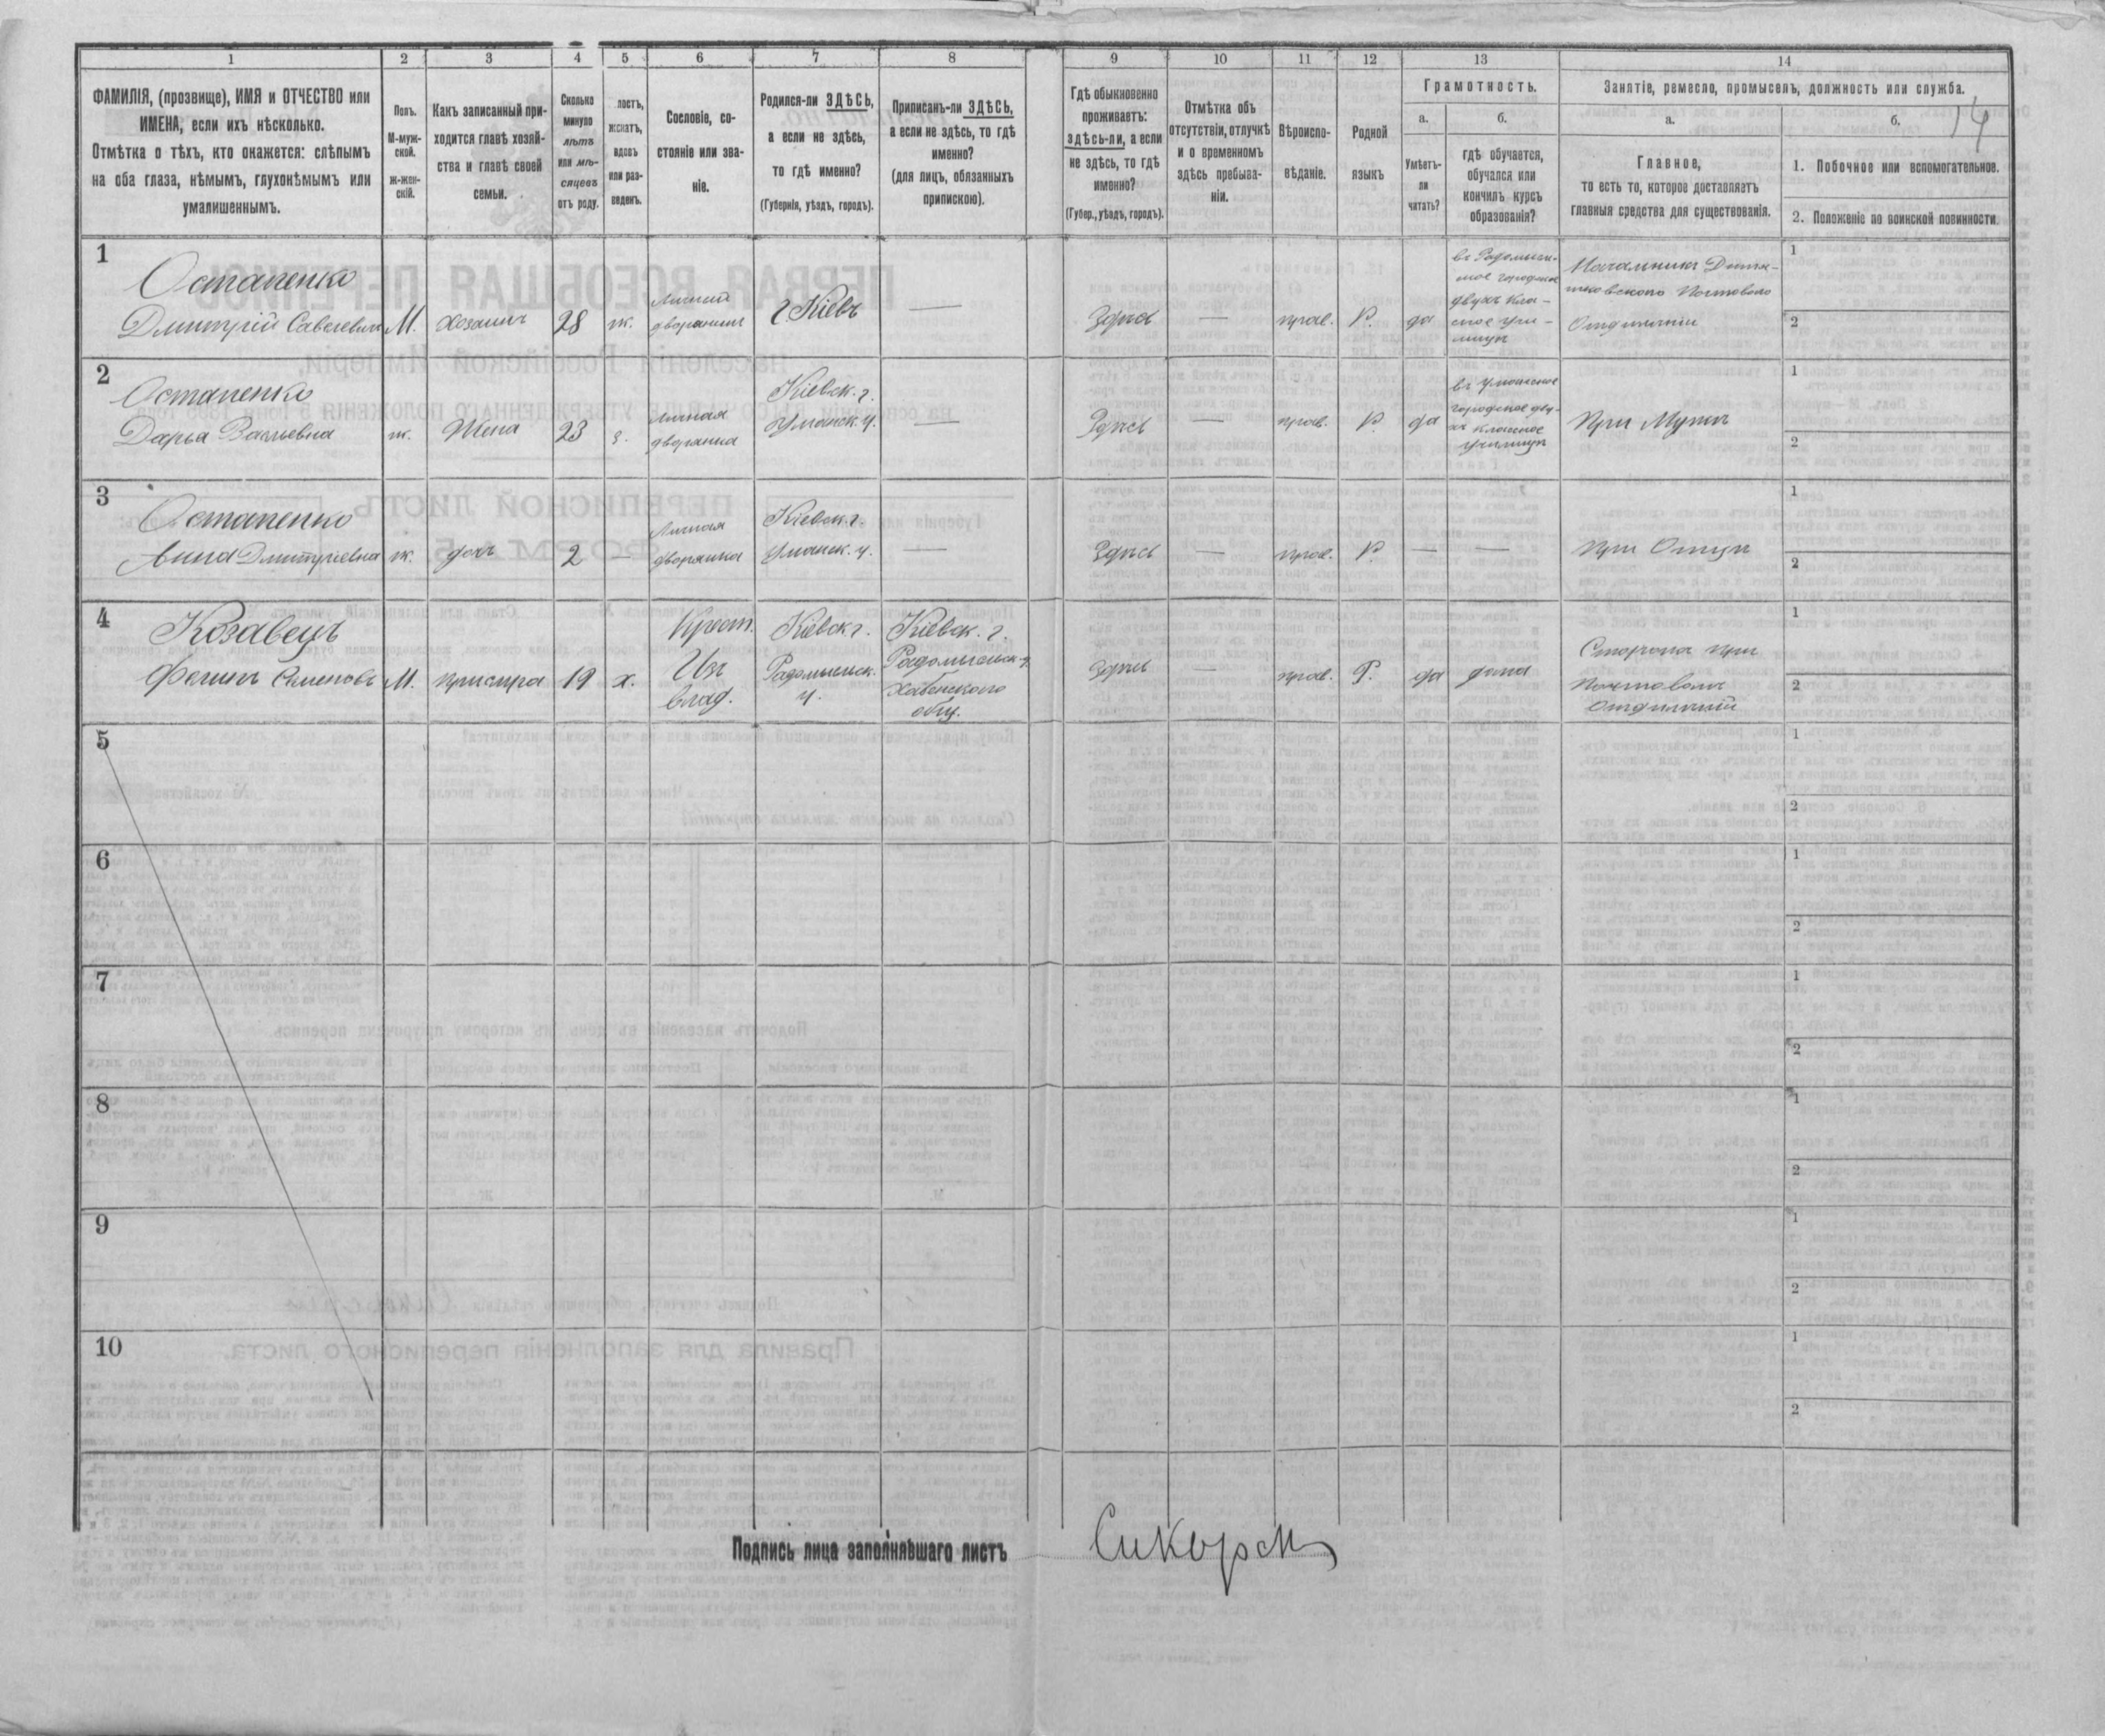 1
2
3
4
5
6
7
8
9
10
11
12
13
14
ФАМИЛІЯ, (прозвище), ИМЯ и ОТЧЕСТВО или
ИМЕНА, если ихъ нѣсколько.
Отмѣтка о тѣхъ, кто окажется: слѣпымъ
на оба глаза, нѣмымъ, глухонѣмымъ или
умалишеннымъ.
Полъ.
М-муж-
ской.
ж-жен-
скій.
Какъ записанный при-
ходится главѣ хозяй-
ства и главѣ своей
семьи.
Сколько
минуло
лѣтъ
или мѣ-
сяцевъ
отъ роду.
лостъ,
женатъ,
вдовъ
или раз-
веденъ.
Сословіе, со-
стояніе или зва-
ніе.
Родился-ли ЗДѢСЬ,
а если не здѣсь,
то гдѣ именно?
(Губернія, уѣздъ, городъ).
Приписанъ-ли ЗДѢСЬ,
а если не здѣсь, то гдѣ
именно?
(для лицъ, обязанныхъ
припискою).
Гдѣ обыкновенно
проживаетъ:
здѣсь-ли, а если
не здѣсь, то гдѣ
именно?
(Губер., уѣздъ, городъ).
Отмѣтка объ
отсутствіи, отлучкѣ
и о временномъ
здѣсь пребыва-
ніи.
Вѣроиспо-
вѣданіе.
Родной
языкъ
Грамотность.
а.
Умѣетъ-
ли
читать?
б.
гдѣ обучается,
обучался или
кончилъ курсъ
образованія?
Занятіе, ремесло, промыселъ, должность или служба.
а.
Главное,
то есть то, которое доставляетъ
главныя средства для существованія.
б.
14
1. Побочное или вспомогательное.
2. Положеніе по воинской повинности.
1
Остапенко
Дмитрій Савелевичъ
М.
хозяинъ
28
ж.
Личный
дворянинъ
г. Кіевъ
—
Здѣсь
—
прав.
Р.
да
въ Радомысль-
ское городское
двухъ кла-
сное учи-
лище
Начальникъ
Почтоваго
Отдѣленія
1
2
2
Остапенко
Дарья Васильевна
ж.
Жена
23
з.
Личная
дворянка
Кіевск. г.
Уманск. у.
—
Здѣсь
—
прав.
Р.
да
въ Уманское
городское дву-
хъ классное
училище
При Мужѣ
1
2
3
Остапенко
Анна Дмитріевна
ж.
дочь
2
—
Личная
дворянка
Кіевск. г.
Уманск. у.
—
Здѣсь
—
прав.
Р.
—
—
при Отцѣ
1
2
4
Козавецъ
Филипъ Семеновъ
М.
прислуга
19
х.
Крест.
Изъ
влад.
Кіевск. г.
Радомысльск.
у.
Кіевск. г.
Радомысльск. у.
Хабенского
общ.
Здѣсь
—
прав.
Р.
да
дома
Сторожъ при
Почтовомъ
Отдѣленіи
1
2
5
1
2
6
1
2
7
1
2
8
1
2
9
1
2
10
1
2
Подпись лица заполнявшаго листъ
Сикорскій